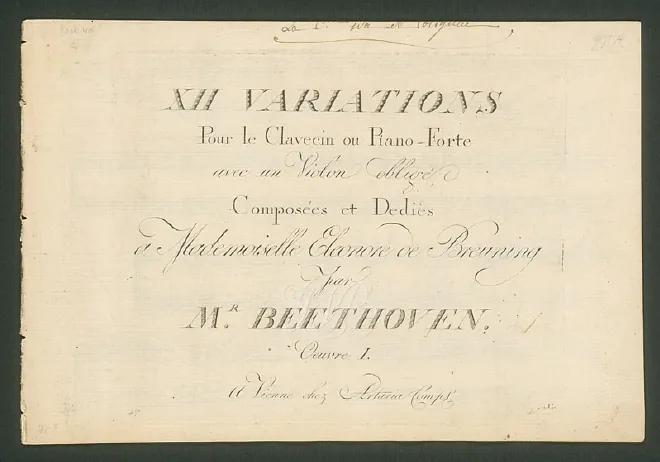 XII VARIATIONS
Pour le Clavecin ou Piano-Forte
avec un Violon obligé
Composées et Dediés
à Mademoiselle Eleonore de Breuning
par
M.R BEETHOVEN.
Oeuvre I.
A Vienne chez Artaria Comp.